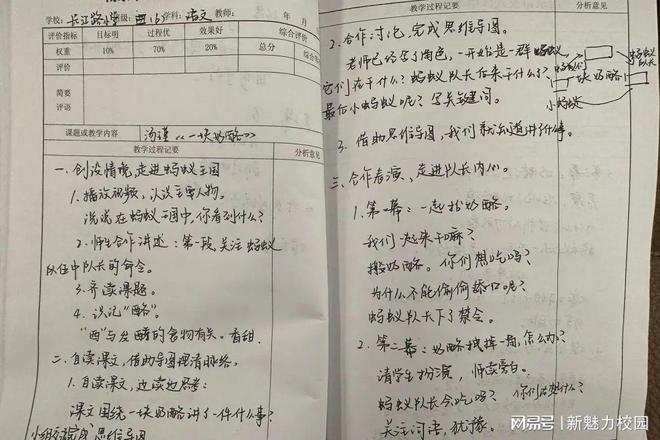 学校:长江路小学 班级: 学科:语文 教师: 年 月
评价指标 目标明 过程优 效果好 综合评价
权重 10% 70% 20% 总分 综合
评价
简要
评语
课题或教学内容 汤瑾《一块奶酪》
教学过程记要 分析意见
一.创设情境,走进蚂蚁王国
1.播放视频,认识主要人物。
说说在蚂蚁王国中,你看到什么?
2.师生合作讲述:第一段,关注蚂蚁
队伍中队长的命令。
3.齐读课题。
4.识记“酪”。
“酉”与发酵的食物有关。香甜
二.自读课文,借助导图理清脉络。
1.自读课文,边读边思考:
课文围绕一块奶酪讲了一件什么事?
思维导图
教学过程记要 分析意见
2.合作讨论,完成思维导图。
老师已经写了角色,一开始是一群蚂蚁
它们在干什么?蚂蚁队长后来干什么了?
最后小蚂蚁呢?写关键词。
蚂蚁队长
一块奶酪
小蚂蚁
3.借助思维导图,我们就知道讲什么事。
三.合作表演,走进队长内心。
1.第一幕:一起抬奶酪。
我们一起来干嘛?
搬奶酪。你们想吃吗?
为什么不能偷偷舔口呢?
蚂蚁队长下了禁令。
2.第二幕:奶酪拽掉一角,怎么办?
请学生扮演,师读旁白。
蚂蚁队长会吃吗?你们在想什么?
关注词语,犹豫。
网易号 | 新魅力校园